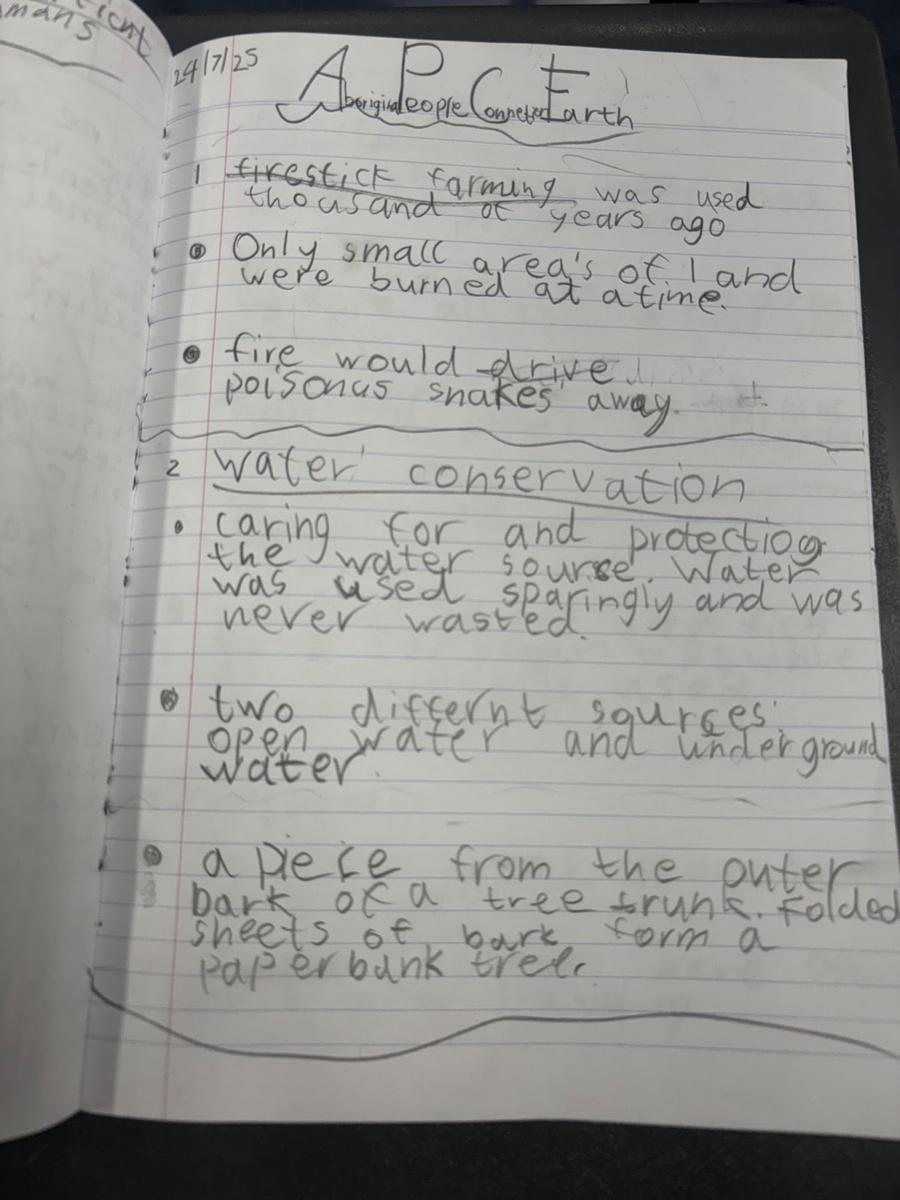 cient
mans
24/7/25
Aboriginal People Connected Earth
1 firestick farming was used
thousand of years ago
Only small area's of land
were burned at a time.
fire would drive
poisonus snakes away.
2 water conservation
caring for and protectiog
the water source. Water
was used sparingly and was
never wasted.
two differnt sources
open water and underground
water.
a piece from the outer
bark of a tree trunk. Folded
sheets of bark form a
paperbank tree.